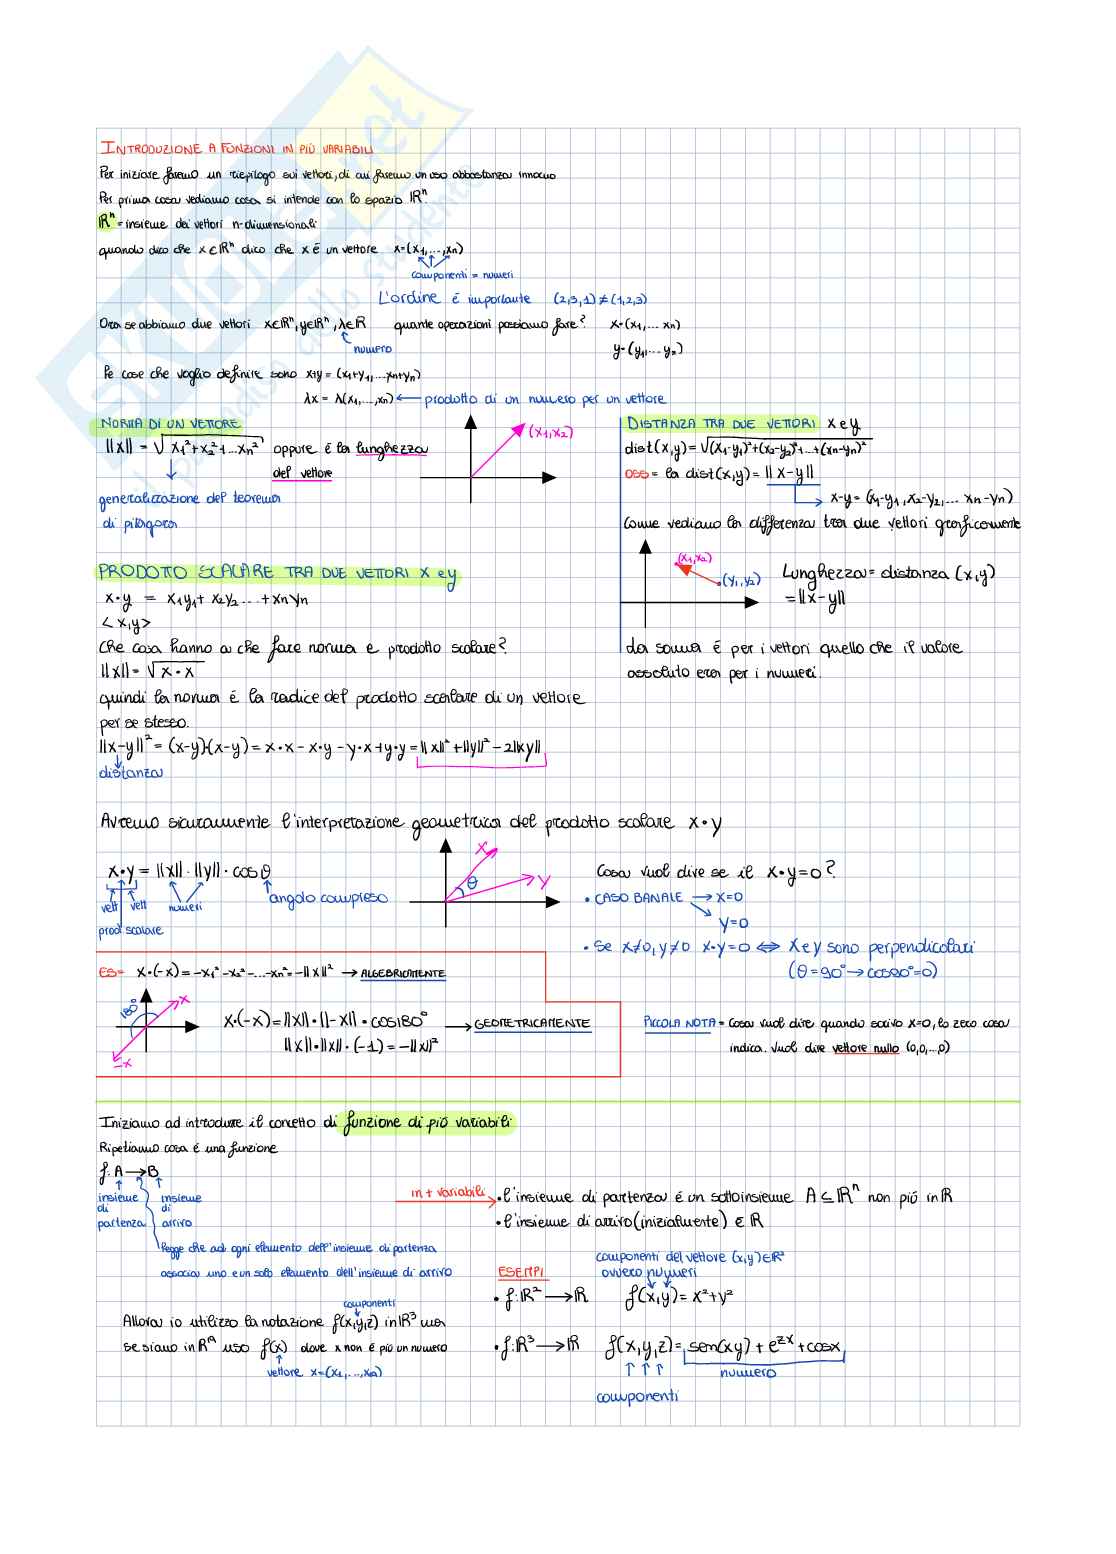 INTRODUZIONE A FUNZIONI IN PIÙ VARIABILI
Per iniziare faremo un riepilogo sui vettori, di cui faremo un uso abbastanza
Per prima cosa vediamo cosa si intende con lo spazio ℝⁿ.
ℝⁿ = insieme dei vettori n-dimensionali
quando dico che x∈ℝⁿ dico che x é un vettore x=(x₁,...,xn)
componenti = numeri
L'ordine é importante (2,3,1)≠(1,2,3)
Ora se abbiamo due vettori x∈ℝⁿ, y∈ℝⁿ, λ∈ℝ quante operazioni possiamo fare? x=(x₁,...xn)
numero
y=(y₁,...yn)
le cose che voglio definire sono x+y = (x₁+y₁,...xn+yn)
λx = λ(x₁,...,xn) ← prodotto di un numero per un vettore
NORMA DI UN VETTORE
||x|| = √x₁²+x₂²+...xn² oppure é la lunghezza del vettore
(x₁,x₂)
generalizzazione del teorema
di pitagora
DISTANZA TRA DUE VETTORI x e y
dist(x,y)=√(x₁-y₁)²+(x₂-y₂)²+...+(xn-yn)²
OSS= la dist(x,y)= ||x-y||
x-y=(x₁-y₁,x₂-y₂,... xn-yn)
Come vediamo la differenza tra due vettori graficamente
(x₁,x₂)
(y₁,y₂)
Lunghezza= distanza (x,y)
=||x-y||
La somma é per i vettori quello che il valore
assoluto era per i numeri.
PRODOTTO SCALARE TRA DUE VETTORI x e y
x•y = x₁y₁+ x₂y₂ ... +xnyn
<x,y>
Che cosa hanno a che fare norma e prodotto scalare?
||x||= √x•x
quindi la norma é la radice del prodotto scalare di un vettore
per se stesso.
||x-y||²= (x-y)•(x-y)= x•x - x•y - y•x+y•y =||x||²+||y||²-2||xy||
distanza
Avremo sicuramente l'interpretazione geometrica del prodotto scalare x•y
x•y = ||x||•||y||•cosθ
vett vett numeri angolo compreso
prod scalare
x
θ
y
Cosa vuol dire se il x•y=0?
• CASO BANALE → x=0
y=0
• se x≠0, y≠0 x•y=0 ⟺ x e y sono perpendicolari
(θ=90°→cos90°=0)
ES= x•(-x)=-x₁²-x₂²-...-xn²=-||x||² → ALGEBRICAMENTE
180°
x
-x
x•(-x)=||x||•||-x||•cos180° → GEOMETRICAMENTE
||x||•||x||•(-1)=-||x||²
PICCOLA NOTA = Cosa vuol dire quando scrivo x=0, lo zero cosa
indica. Vuol dire vettore nullo (0,0,...,0)
Iniziamo ad introdurre il concetto di funzione di più variabili
Ripetiamo cosa é una funzione
f: A→B
insieme di partenza
insieme di arrivo
legge che ad ogni elemento dell'insieme di partenza
associa uno e un solo elemento dell'insieme di arrivo
in + variabili
• l'insieme di partenza é un sottoinsieme A⊆ℝⁿ non più in ℝ
• l'insieme di arrivo (inizialmente) ∈ ℝ
ESEMPI
componenti del vettore (x,y)∈ℝ²
ovvero numeri
• f:ℝ²→ℝ f(x,y)= x²+y²
• f:ℝ³→ℝ f(x,y,z)= sen(xy)+e^zx+cosx
numero
componenti
componenti
Allora io utilizzo la notazione f(x,y,z) in ℝ³ ma
se siamo in ℝⁿ uso f(x) dove x non é più un numero
vettore x=(x₁,...,xn)